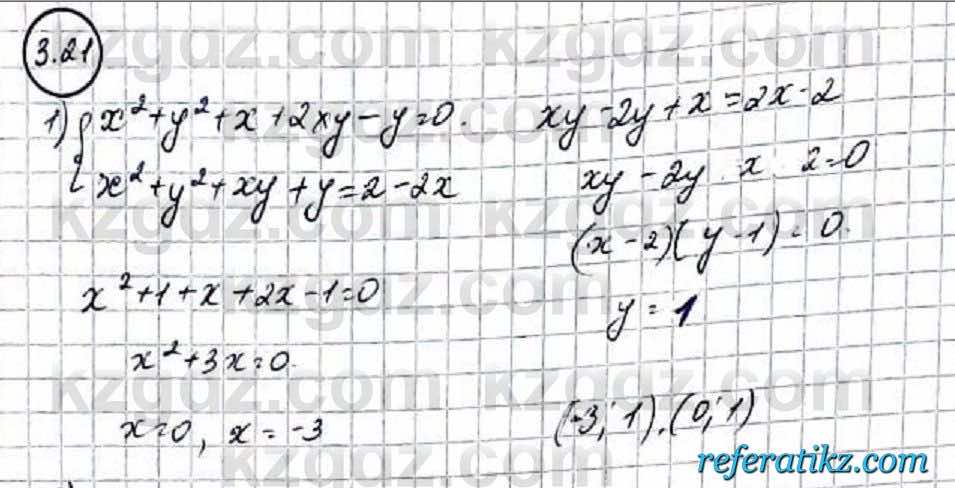 3.21
1) { x² + y² + x + 2xy - y = 0.
x² + y² + xy + y = 2 - 2x
xy - 2y + x = 2x - 2
xy - 2y x 2 = 0
(x - 2)(y - 1) = 0.
y = 1
x² + 1 + x + 2x - 1 = 0
x² + 3x = 0.
x = 0, x = -3
(-3; 1), (0; 1)
kzgdz.com
referatikz.com